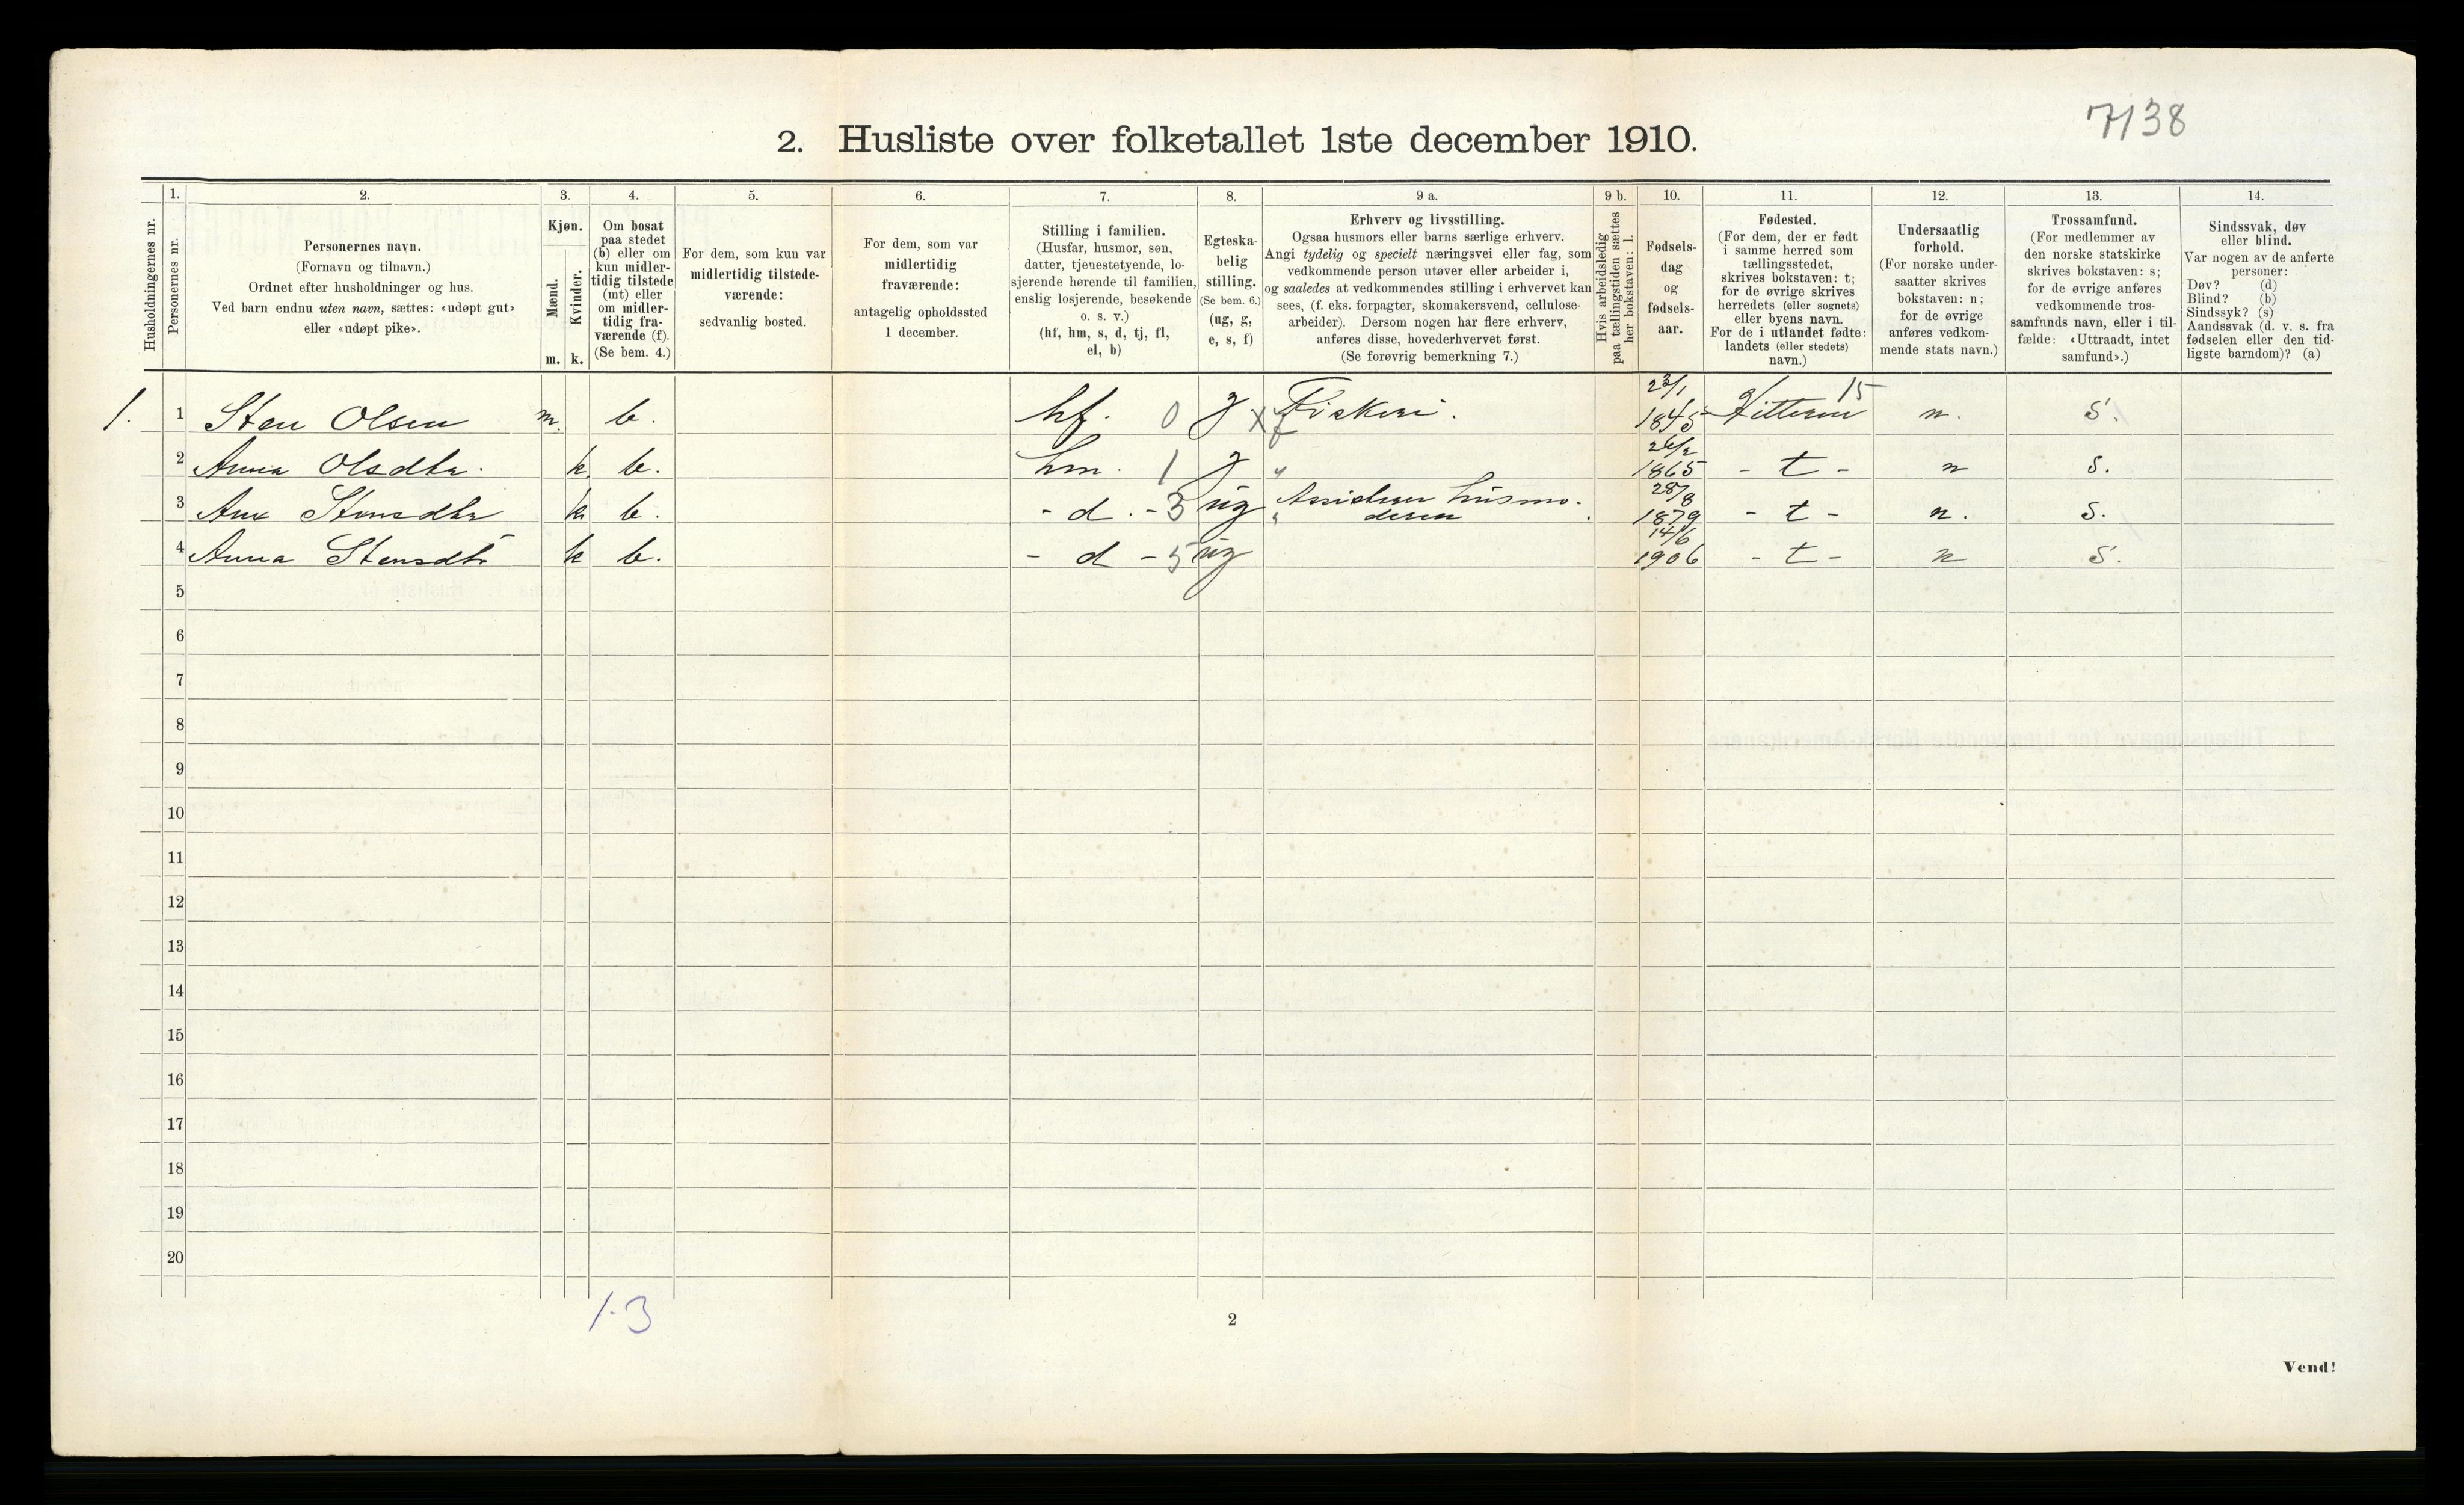 7138
2. Husliste over folketallet 1ste december 1910.
Husholdningernes nr.
1.
Personernes nr.
2.
Personernes navn.
(Fornavn og tilnavn.)
Ordnet efter husholdninger og hus.
Ved barn endnu uten navn, sættes: «udøpt gut»
eller «udøpt pike».
3.
Kjøn.
Mænd.
Kvinder.
m. k.
4.
Om bosat
paa stedet
(b) eller om
kun midler-
tidig tilstede
(mt) eller
om midler-
tidig fra-
værende (f).
(Se bem. 4.)
5.
For dem, som kun var
midlertidig tilstede-
værende:
sedvanlig bosted.
6.
For dem, som var
midlertidig
fraværende:
antagelig opholdssted
1 december.
7.
Stilling i familien.
(Husfar, husmor, søn,
datter, tjenestetyende, lo-
sjerende hørende til familien,
enslig losjerende, besøkende
o. s. v.)
(hf, hm, s, d, tj, fl,
el, b)
8.
Egteska-
belig
stilling.
(Se bem. 6.)
(ug, g,
e, s, f)
9 a.
Erhverv og livsstilling.
Ogsaa husmors eller barns særlige erhverv.
Angi tydelig og specielt næringsvei eller fag, som
vedkommende person utøver eller arbeider i,
og saaledes at vedkommendes stilling i erhvervet kan
sees, (f. eks. forpagter, skomakersvend, cellulose-
arbeider). Dersom nogen har flere erhverv,
anføres disse, hovederhvervet først.
(Se forøvrig bemerkning 7.)
9 b.
Hvis arbeidsledig
paa tællingstiden sættes
her bokstaven: l.
10.
Fødsels-
dag
og
fødsels-
aar.
11.
Fødested.
(For dem, der er født
i samme herred som
tællingsstedet,
skrives bokstaven: t;
for de øvrige skrives
herredets (eller sognets)
eller byens navn.
For de i utlandet fødte:
landets (eller stedets)
navn.)
12.
Undersaatlig
forhold.
(For norske under-
saatter skrives
bokstaven: n;
for de øvrige
anføres vedkom-
mende stats navn.)
13.
Trossamfund.
(For medlemmer av
den norske statskirke
skrives bokstaven: s;
for de øvrige anføres
vedkommende tros-
samfunds navn, eller i til-
fælde: «Uttraadt, intet
samfund».)
14.
Sindssvak, døv
eller blind.
Var nogen av de anførte
personer:
Døv? (d)
Blind? (b)
Sindssyk? (s)
Aandssvak (d. v. s. fra
fødselen eller den tid-
ligste barndom)? (a)
1. 1 Sten Olsen m. b. hf. 0 g x Fiskeri. 23/1 1845 Hitteren 15 n. s.
2 Anna Olsdtr. k b. hm. 1 g " 26/2 1865 - t - n s.
3 Ane Stensdtr k b. - d. - 3 ug Assisterer husmo-
deren. 28/8 1879 - t - n. s.
4 Anna Stensdtr k b. - d - 5 ug 14/6 1906 - t - n s.
5
6
7
8
9
10
11
12
13
14
15
16
17
18
19
20
1-3
2
Vend!